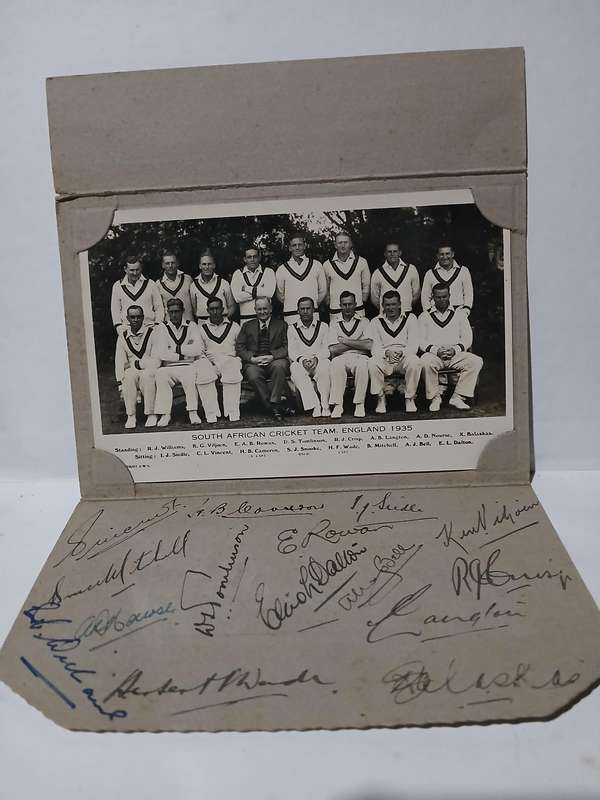 SOUTH AFRICAN CRICKET TEAM. ENGLAND 1935
Standing: R.J. Williams, K.G. Viljoen, E.A.B. Rowan, D.S. Tomlinson, R.J. Crisp, A.B. Langton, A.D. Nourse, X. Balaskas.
Sitting: I.J. Siedle, C.L. Vincent, H.B. Cameron, S.J. Snooke, H.F. Wade, B. Mitchell, A.J. Bell, E.L. Dalton.
H B Cameron I J Siedle
E Rowan Ken Viljoen
Bruce Mitchell D S Tomlinson
Eric L Dalton R J Crisp
A D Nourse Langton
Herbert F Wade Balaskas